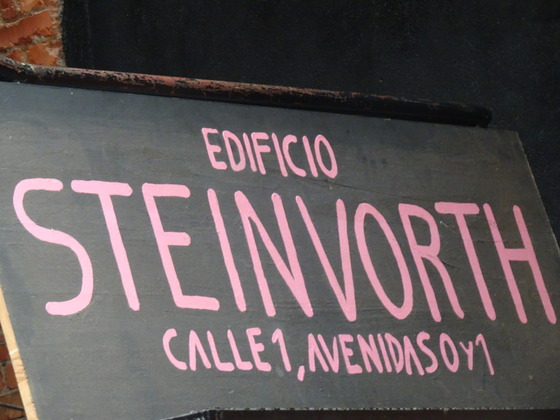 EDIFICIO
STEINVORTH
CALLE 1, AVENIDAS 0 y 1